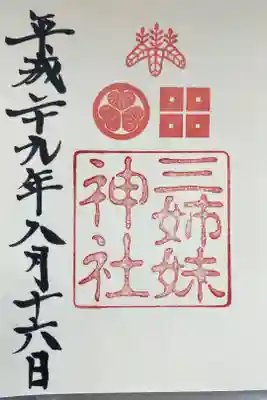 三姉妹
神社
平成二十九年八月十六日